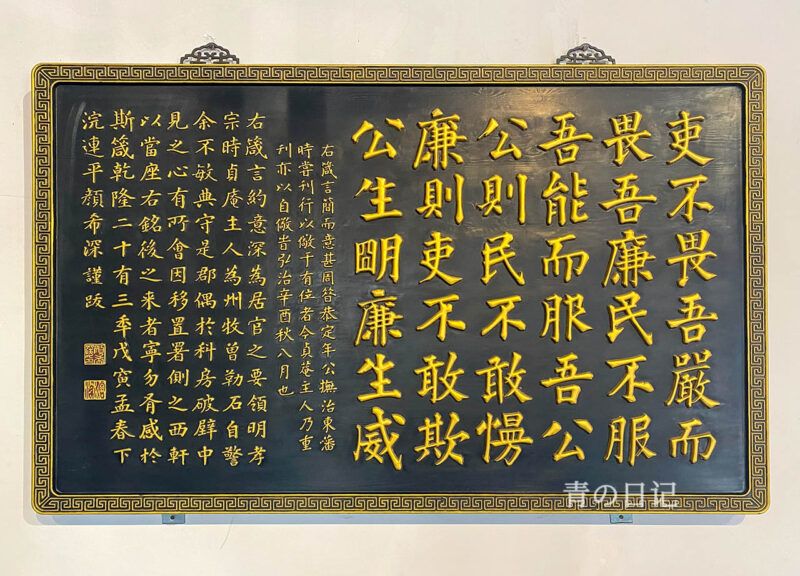 吏不畏吾嚴而
畏吾廉民不服
吾能而服吾公
公則民不敢慢
廉則吏不敢欺
公生眀廉生威
右箴言簡而意甚周昝恭定年公撫治東藩
時甞刊行以儆于有位者今貞菴主人乃重
刊亦以自儆旹弘治辛酉秋八月也
右箴言約意深為居官之要領明孝
宗時貞庵主人為州牧曾勒石自警
余不敏典守是郡偶於科房破壁中
見之心有所會因移置署側之西軒
以當座右銘後之来者寧勿胥感於
斯箴乾隆二十有三年戊寅孟春下
浣連平顏希深謹跋
青の日记